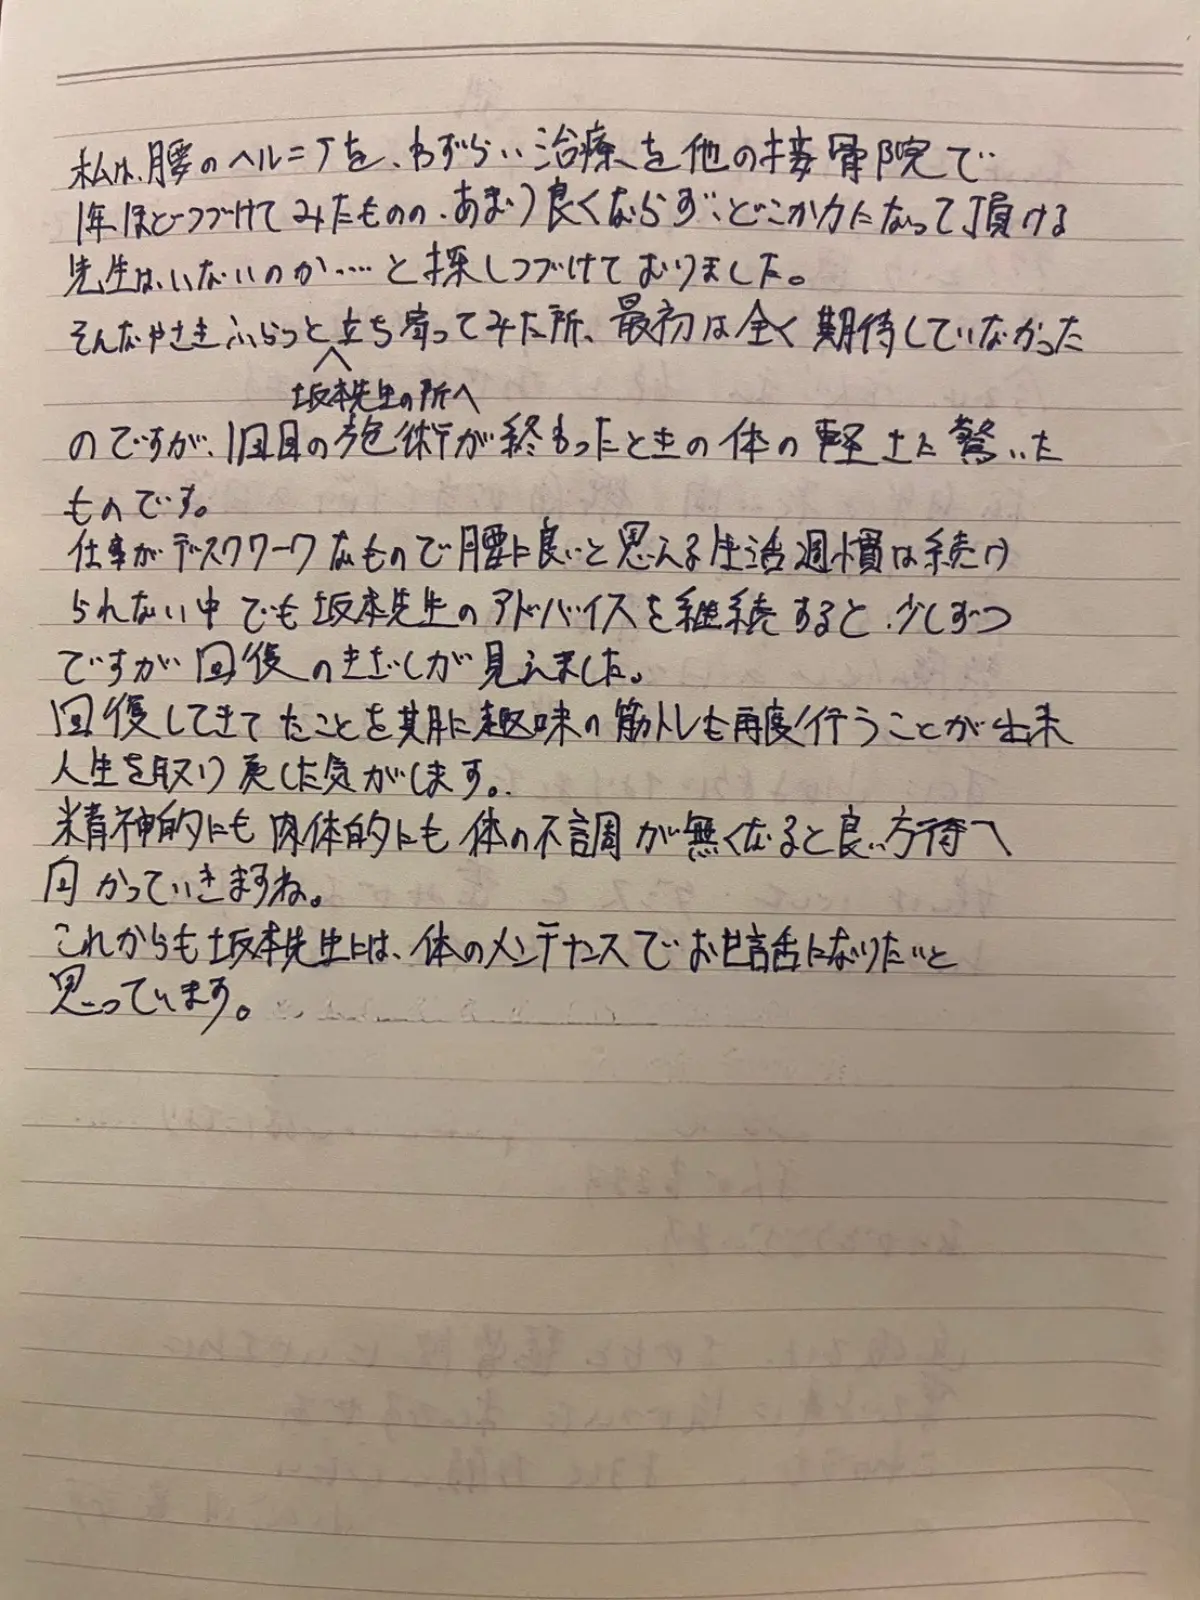 私は、腰のヘルニアを、わずらい治療を他の接骨院で
1年ほどつづけてみたものの、あまり良くならず、どこか力になって頂ける
先生は、いないのか……と探しつづけておりました。
そんなやさきふらっと立ち寄ってみた所、最初は全く期待していなかった
坂本先生の所へ
のですが、1回目の施術が終わったときの体の軽さに驚いた
ものです。
仕事がデスクワークなもので腰に良いと思える生活週慣は続け
られない中でも坂本先生のアドバイスを継続すると、少しずつ
ですが回復のきざしが見えました。
回復してきてたことを期に趣味の筋トレも再度行うことが出来
人生を取り戻した気がします。
精神的にも肉体的にも体の不調が無くなると良い方へ
向かっていきますね。
これからも坂本先生には、体のメンテナンスでお世話になりたいと
思っています。